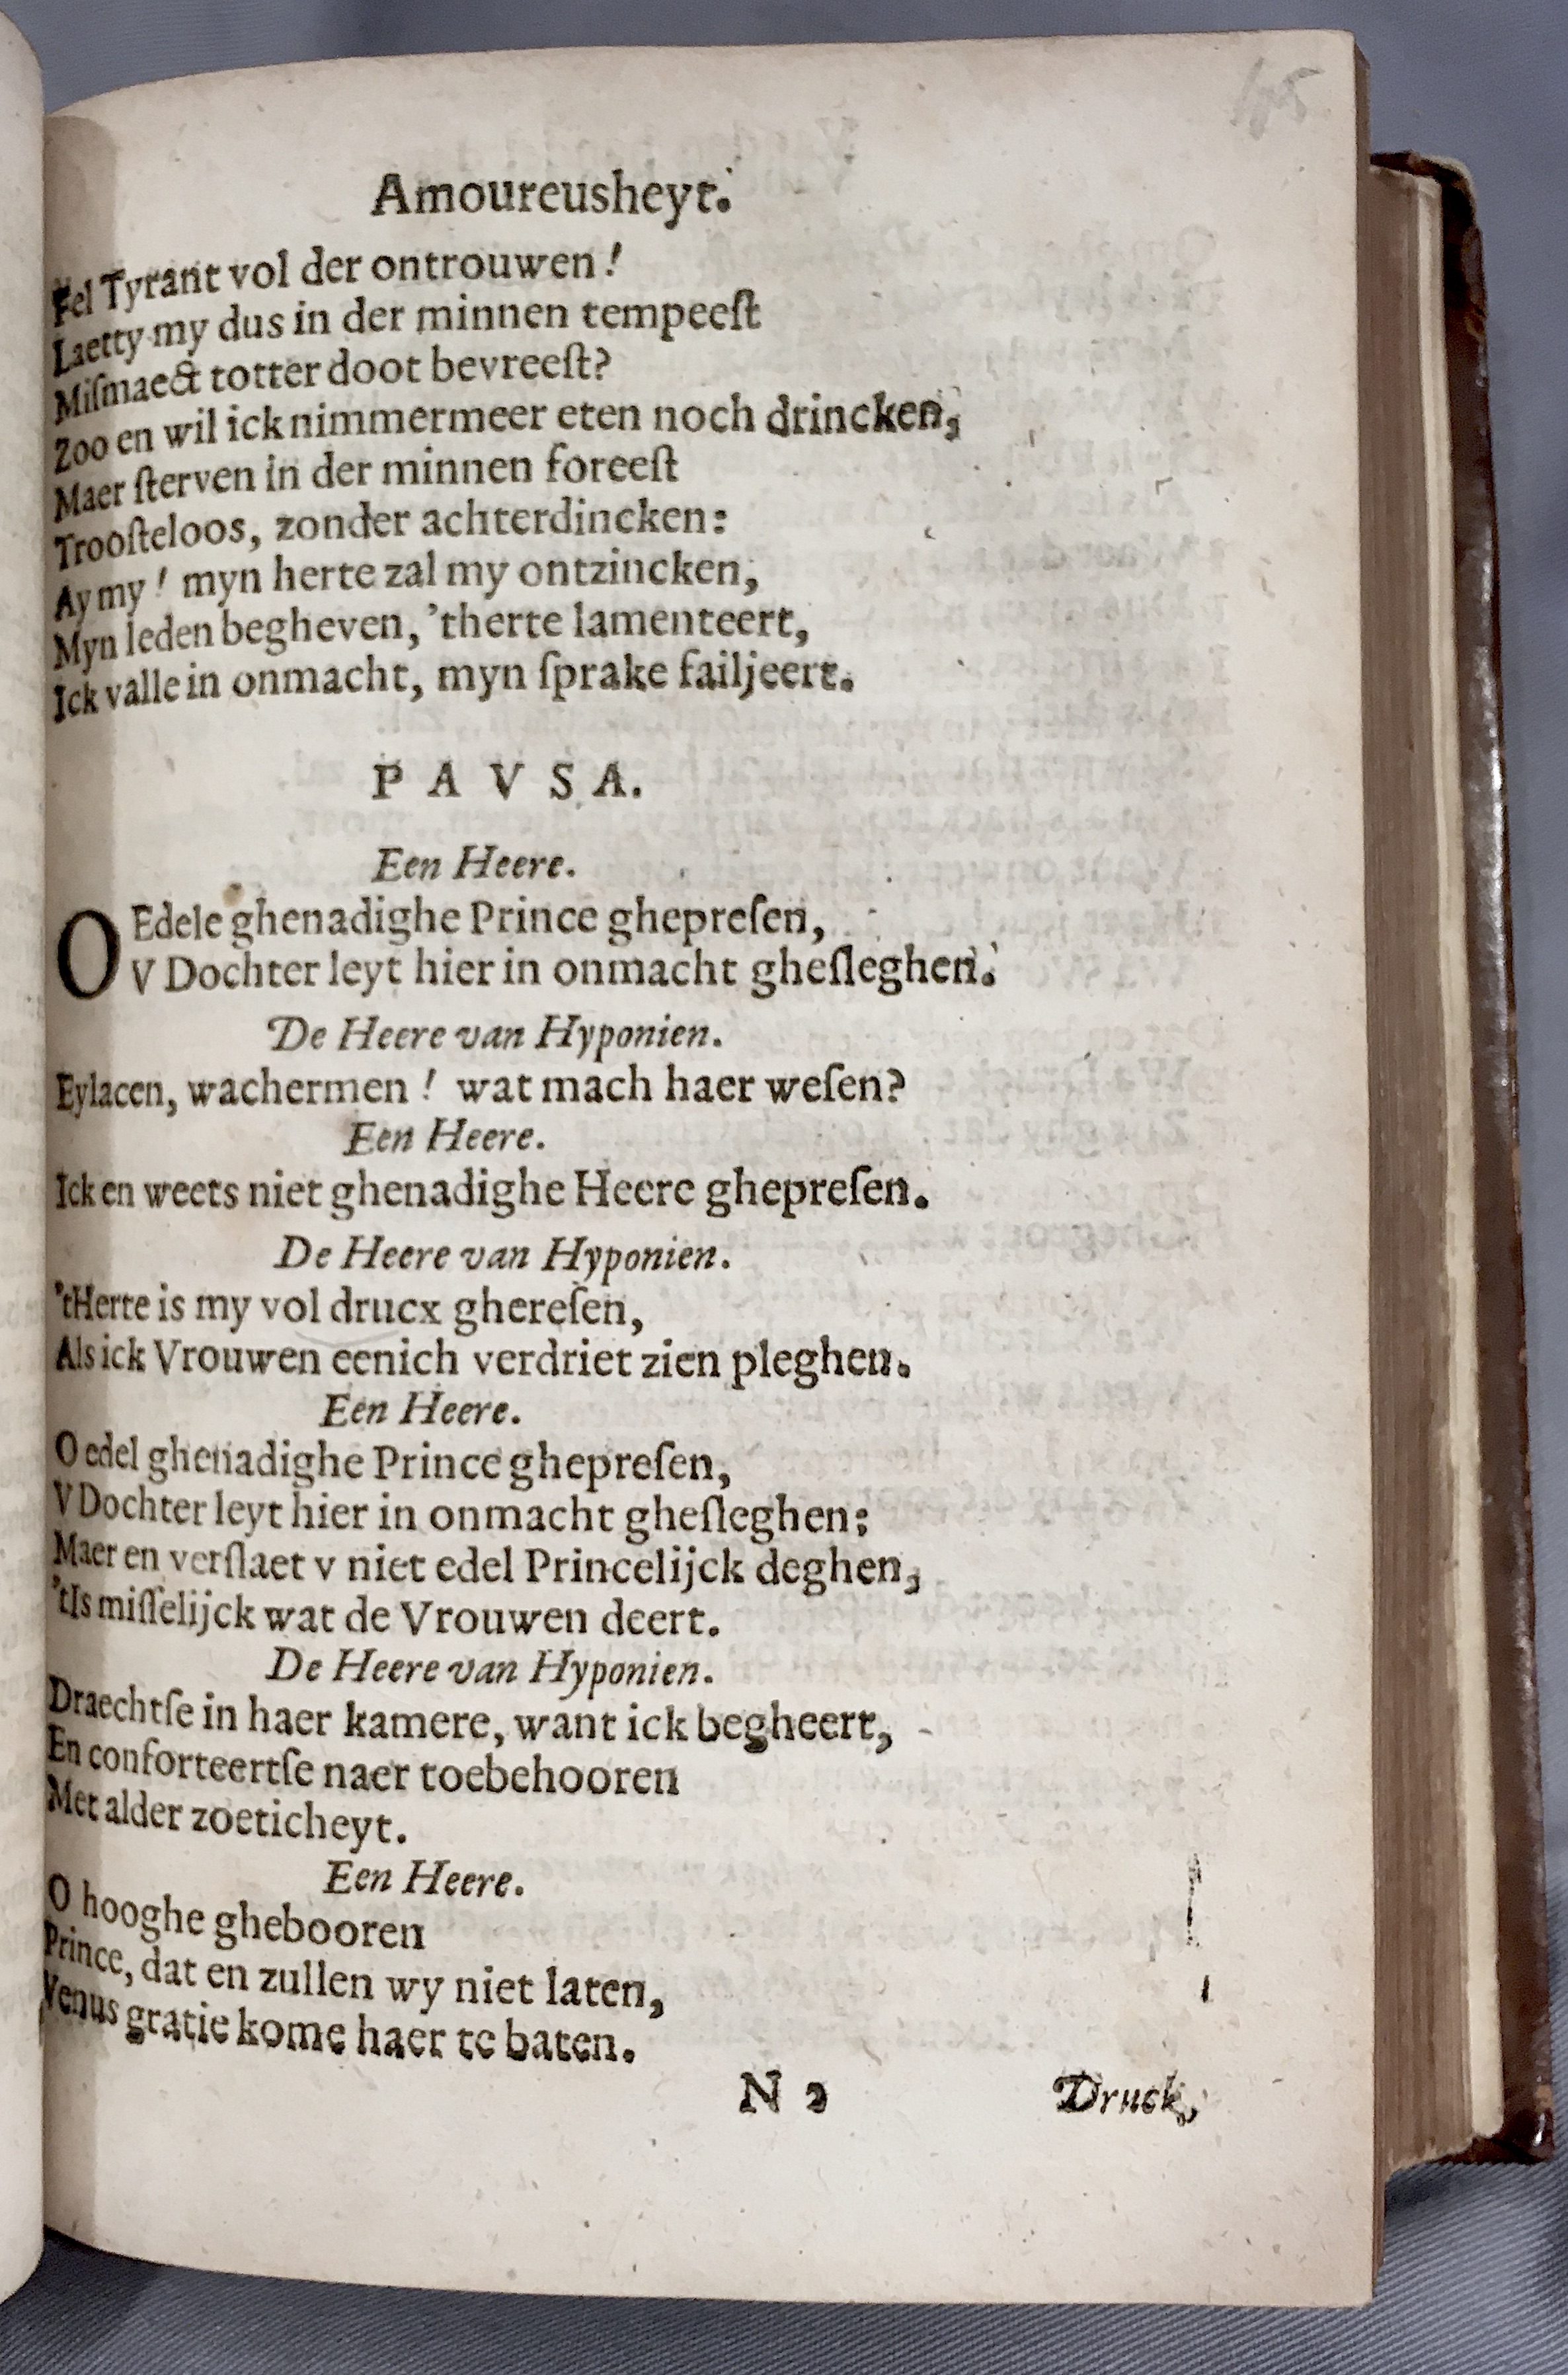 Amoureusheyt.
Fel Tyrant vol der ontrouwen!
Laetty my dus in der minnen tempeeſt
Miſmaect totter doot bevreeſt?
Zoo en wil ick nimmermeer eten noch drincken,
Maer ſterven in der minnen foreeſt
Trooſteloos, zonder achterdincken:
Ay my! myn herte zal my ontzincken,
Myn leden begheven, 'therte lamenteert,
Ick valle in onmacht, myn ſprake failjeert.
PAVSA.
Een Heere.
O Edele ghenadighe Prince ghepreſen,
V Dochter leyt hier in onmacht gheſleghen.
De Heere van Hyponien.
Eylacen, wachermen! wat mach haer weſen?
Een Heere.
Ick en weets niet ghenadighe Heere ghepreſen.
De Heere van Hyponien.
'tHerte is my vol drucx ghereſen,
Als ick Vrouwen eenich verdriet zien pleghen.
Een Heere.
O edel ghenadighe Prince ghepreſen,
V Dochter leyt hier in onmacht gheſleghen:
Maer en verſlaet v niet edel Princelijck deghen,
'tIs miſſelijck wat de Vrouwen deert.
De Heere van Hyponien.
Draechtſe in haer kamere, want ick begheert,
En conforteertſe naer toebehooren
Met alder zoeticheyt.
Een Heere.
O hooghe ghebooren
Prince, dat en zullen wy niet laten,
Venus gratie kome haer te baten.
N 2 Druck,